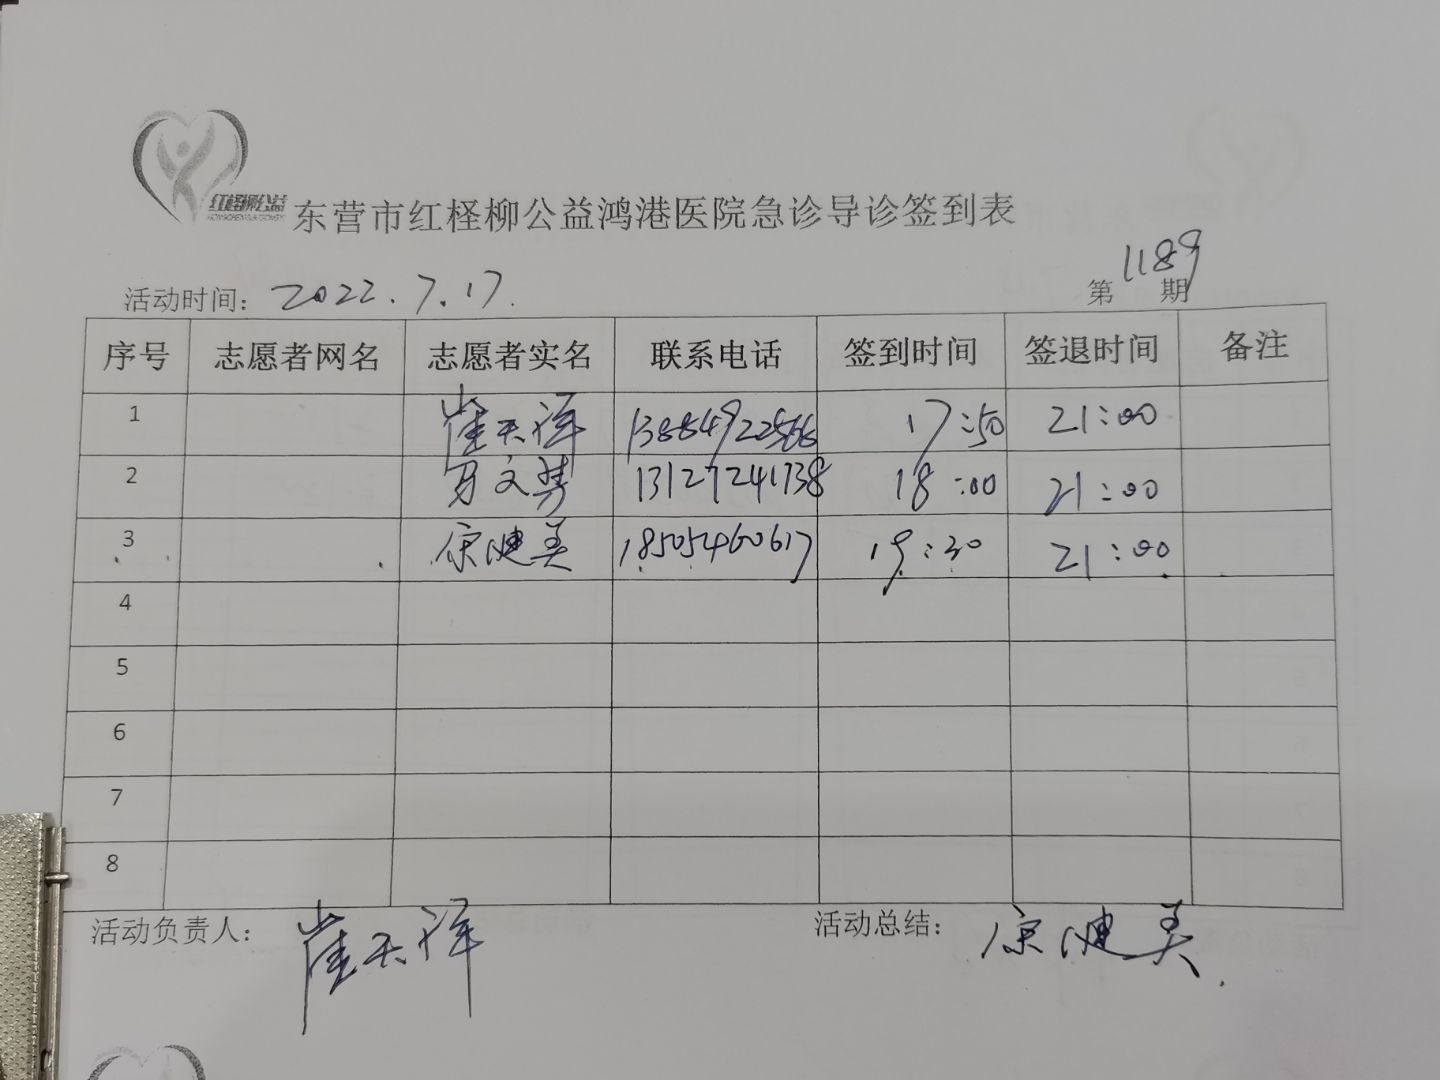 红柽柳公益
东营市红柽柳公益鸿港医院急诊导诊签到表
活动时间: 2022.7.17. 第1189期
序号 志愿者网名 志愿者实名 联系电话 签到时间 签退时间 备注
1 崔天祥 13884922566 17:50 21:00
2 万文慧 13127241738 18:00 21:00
3 康健美 18505460617 19:30 21:00
4
5
6
7
8
活动负责人: 崔天祥 活动总结: 康健美